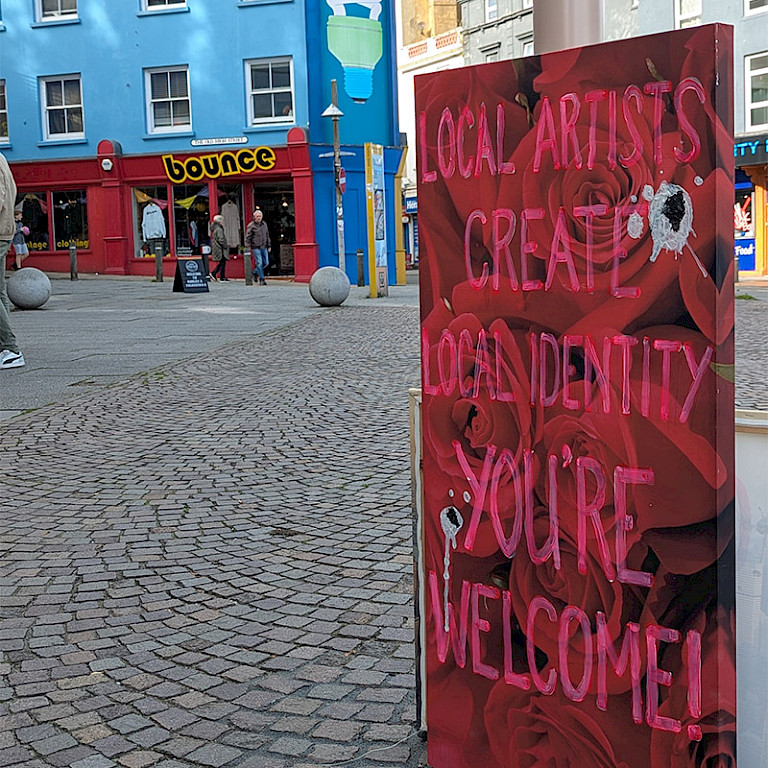 THE OLD HIGH STREET
bounce
clothing
LOCAL ARTISTS
CREATE
LOCAL IDENTITY
YOU'RE
WELCOME!